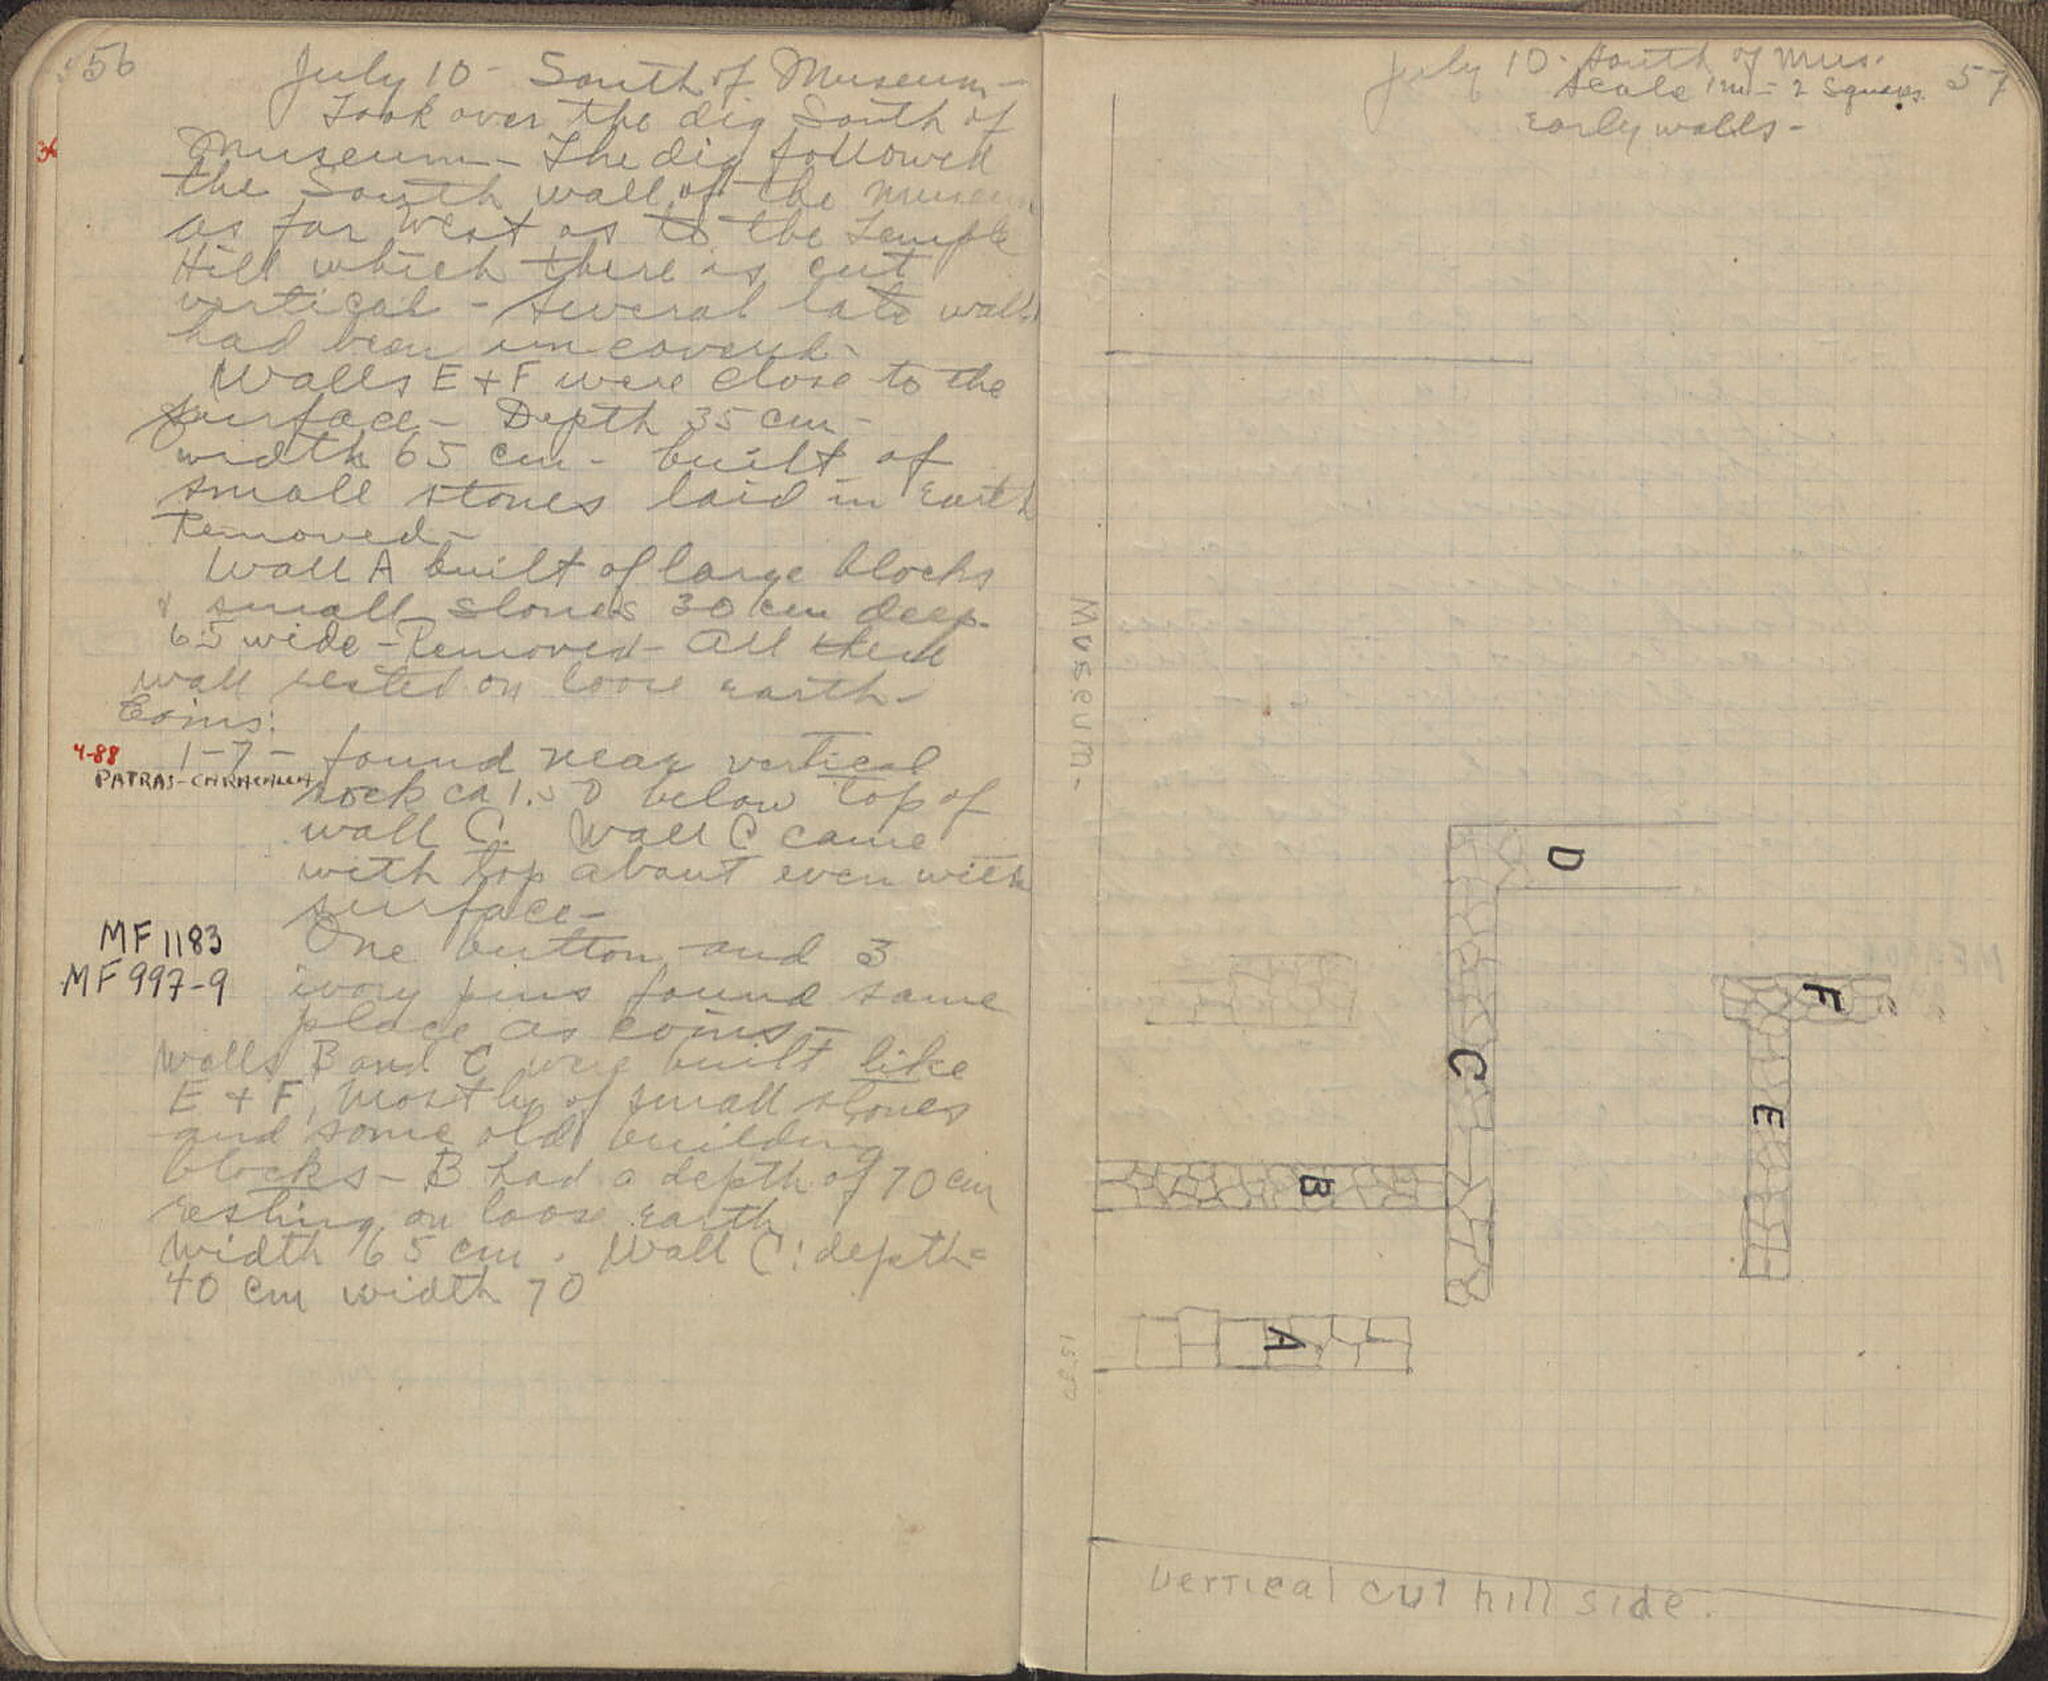 56
July 10 - South of Museum -
Took over the dig South of
36
Museum - The dig followed
the South wall of the Museum
as far West as to the Temple
Hill which there is cut
vertical - Several late walls
had been uncovered -
Walls E + F were close to the
surface - Depth 35 cm -
width 65 cm - built of
small stones laid in Earth
Removed -
Wall A built of large blocks
& small stones 30 cm deep -
65 wide - Removed - All these
wall rested on loose earth -
Coins:
4-88
1-7 - found near vertical
PATRAS - CARACALLA
rock ca 1.50 below top of
wall C. Wall C came
with top about even with
surface -
MF 1183
One button and 3
MF 997-9
ivory pins found same
place as coins -
Walls B and C were built like
E + F, mostly of small stones
and some old building
blocks - B had a depth of 70 cm
resting on loose earth
width 65 cm. Wall C: depth =
40 cm width 70
July 10 - South of Mus.
57
Scale 1m = 2 Squares.
Early walls -
Museum -
D
F
C
E
B
A
Vertical cut hill side.